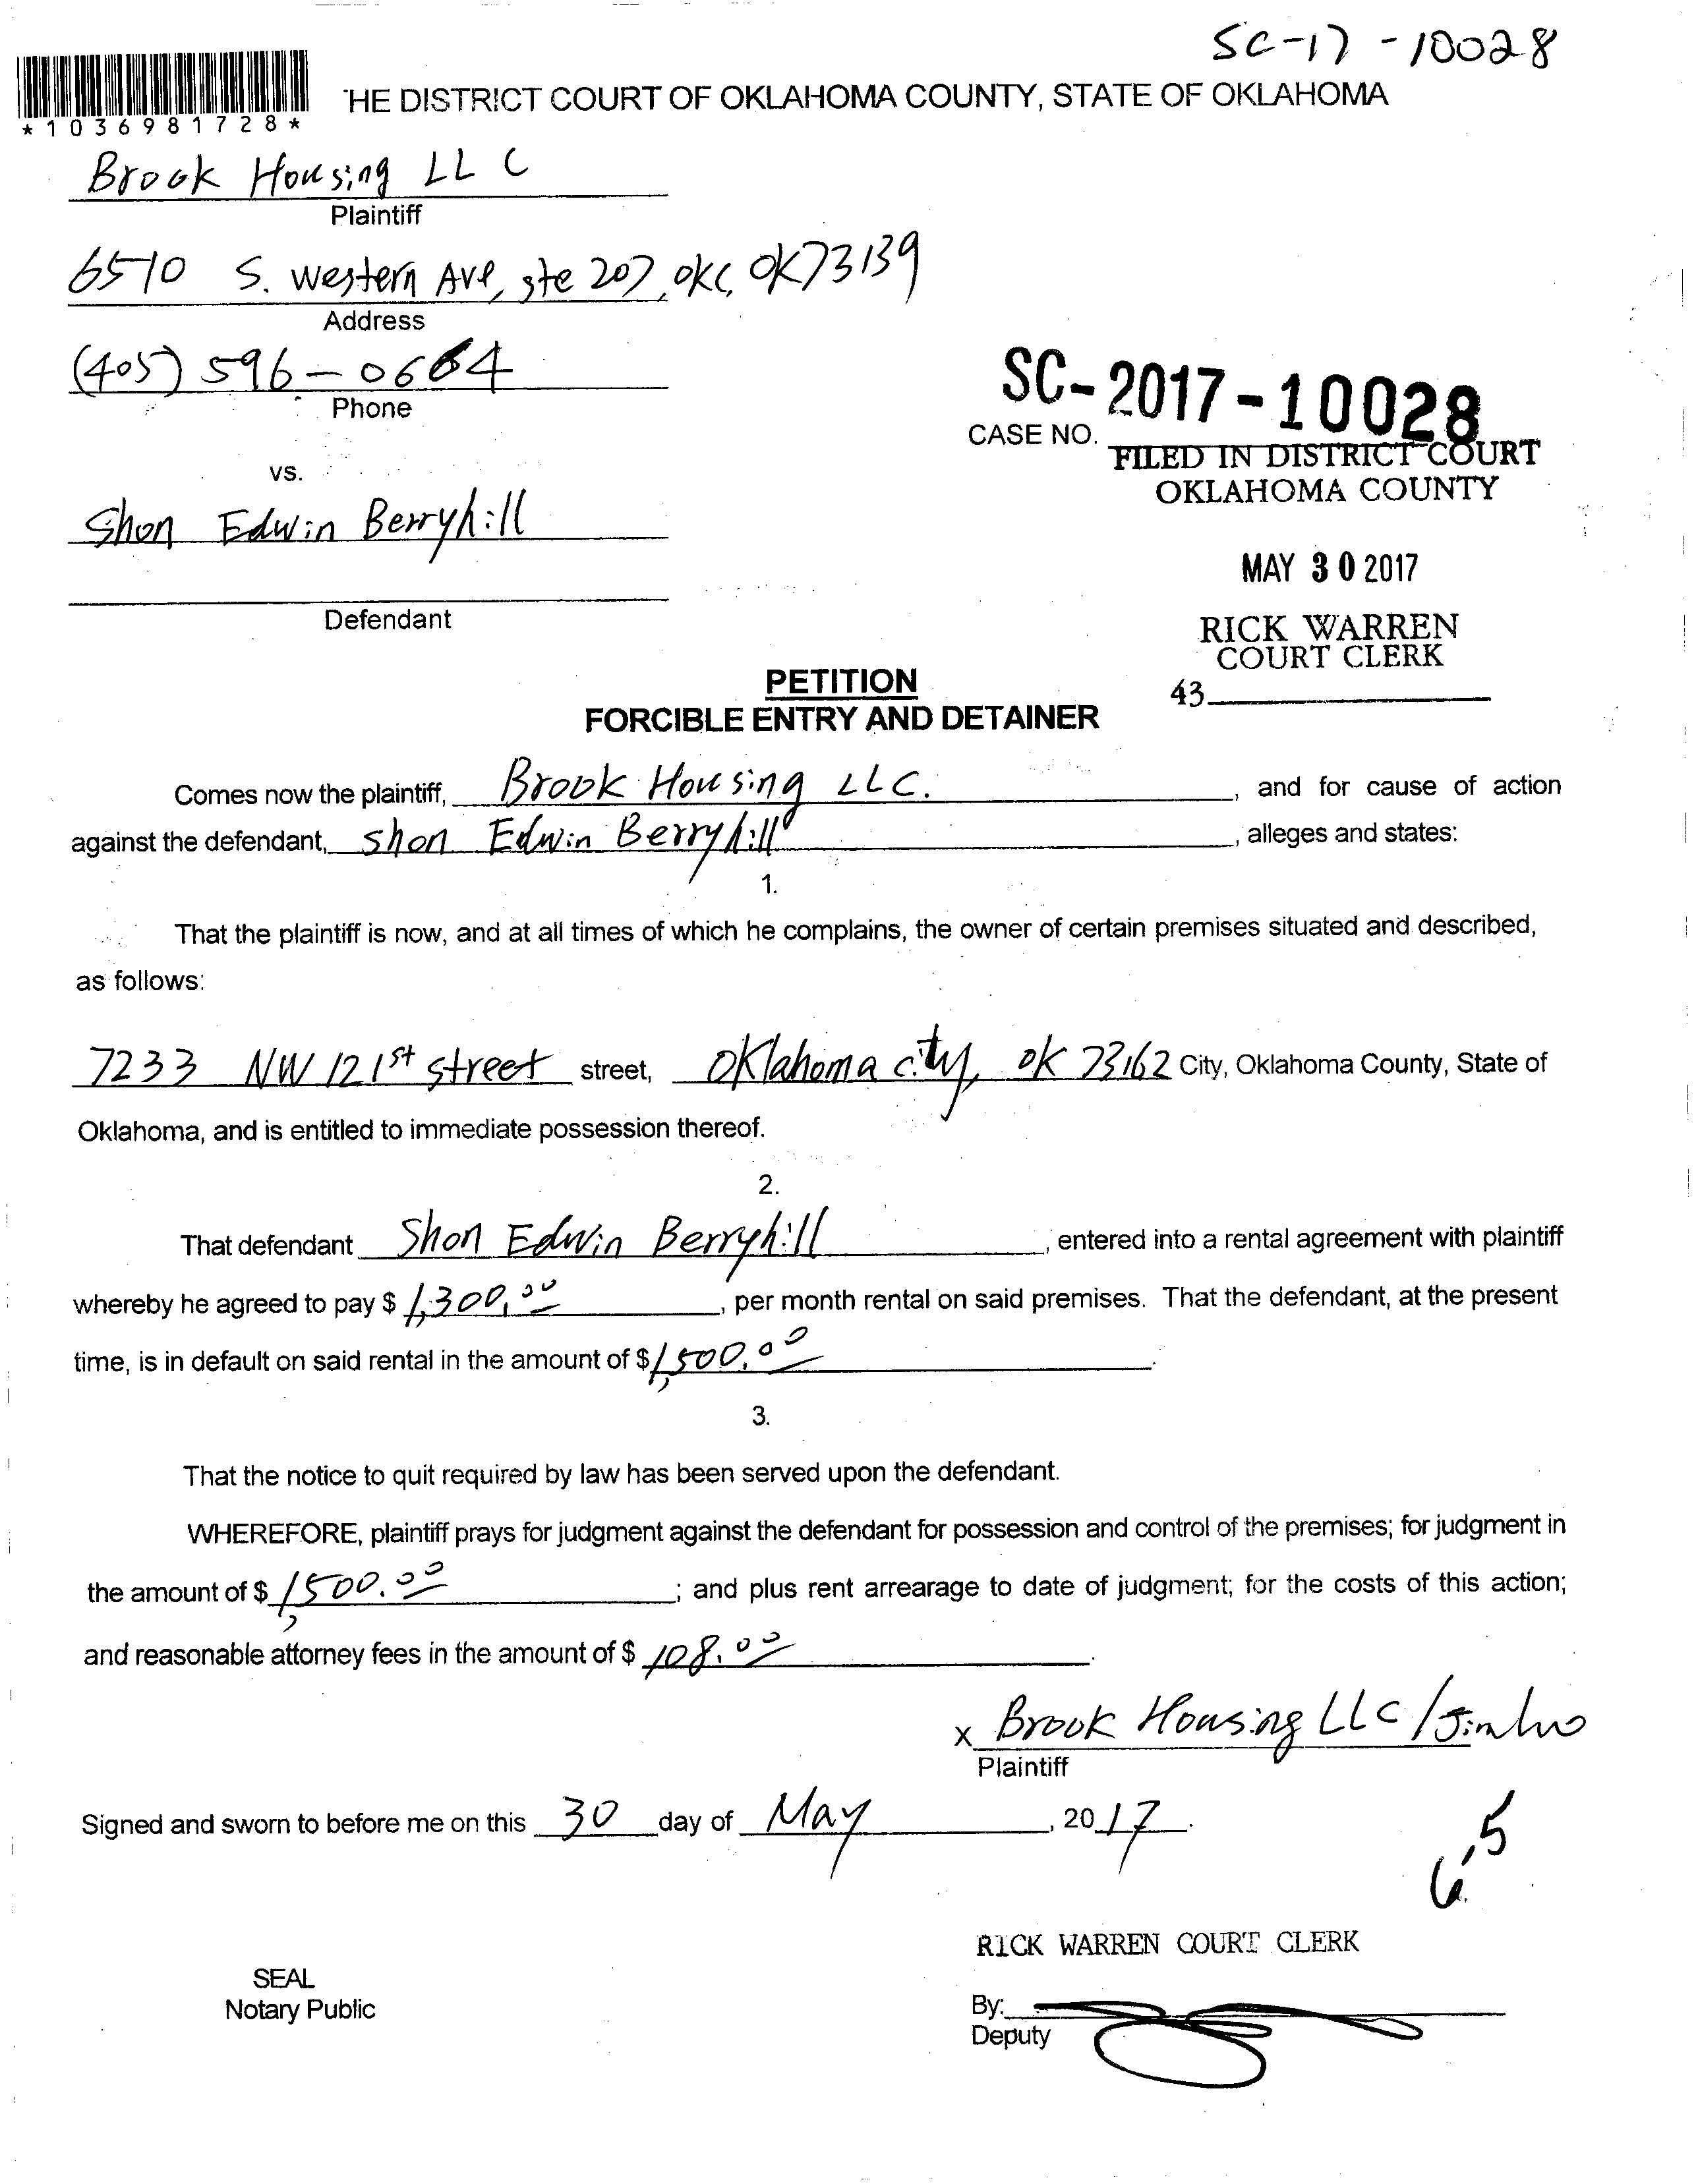 SC-17-10028
*1036981728*
HE DISTRICT COURT OF OKLAHOMA COUNTY, STATE OF OKLAHOMA
Brook Housing LLC
Plaintiff
6510 S. Western Ave, ste 207, OKC, OK 73139
Address
(405) 596-0664
Phone
SC-2017-10028
CASE NO.
FILED IN DISTRICT COURT
OKLAHOMA COUNTY
vs.
Shon Edwin Berryhill
MAY 30 2017
Defendant
RICK WARREN
COURT CLERK
43
PETITION
FORCIBLE ENTRY AND DETAINER
Comes now the plaintiff, Brook Housing LLC. , and for cause of action
against the defendant, Shon Edwin Berryhill , alleges and states:
1.
That the plaintiff is now, and at all times of which he complains, the owner of certain premises situated and described,
as follows:
7233 NW 121st street street, Oklahoma city, OK 73162 City, Oklahoma County, State of
Oklahoma, and is entitled to immediate possession thereof.
2.
That defendant Shon Edwin Berryhill , entered into a rental agreement with plaintiff
whereby he agreed to pay $ 1,300.00 , per month rental on said premises. That the defendant, at the present
time, is in default on said rental in the amount of $ 1,500.00 .
3.
That the notice to quit required by law has been served upon the defendant.
WHEREFORE, plaintiff prays for judgment against the defendant for possession and control of the premises; for judgment in
the amount of $ 1,500.00 ; and plus rent arrearage to date of judgment; for the costs of this action;
and reasonable attorney fees in the amount of $ 108.00 .
x Brook Housing LLC /
Plaintiff
Signed and sworn to before me on this 30 day of May , 2017.
RICK WARREN COURT CLERK
SEAL
Notary Public
By:
Deputy